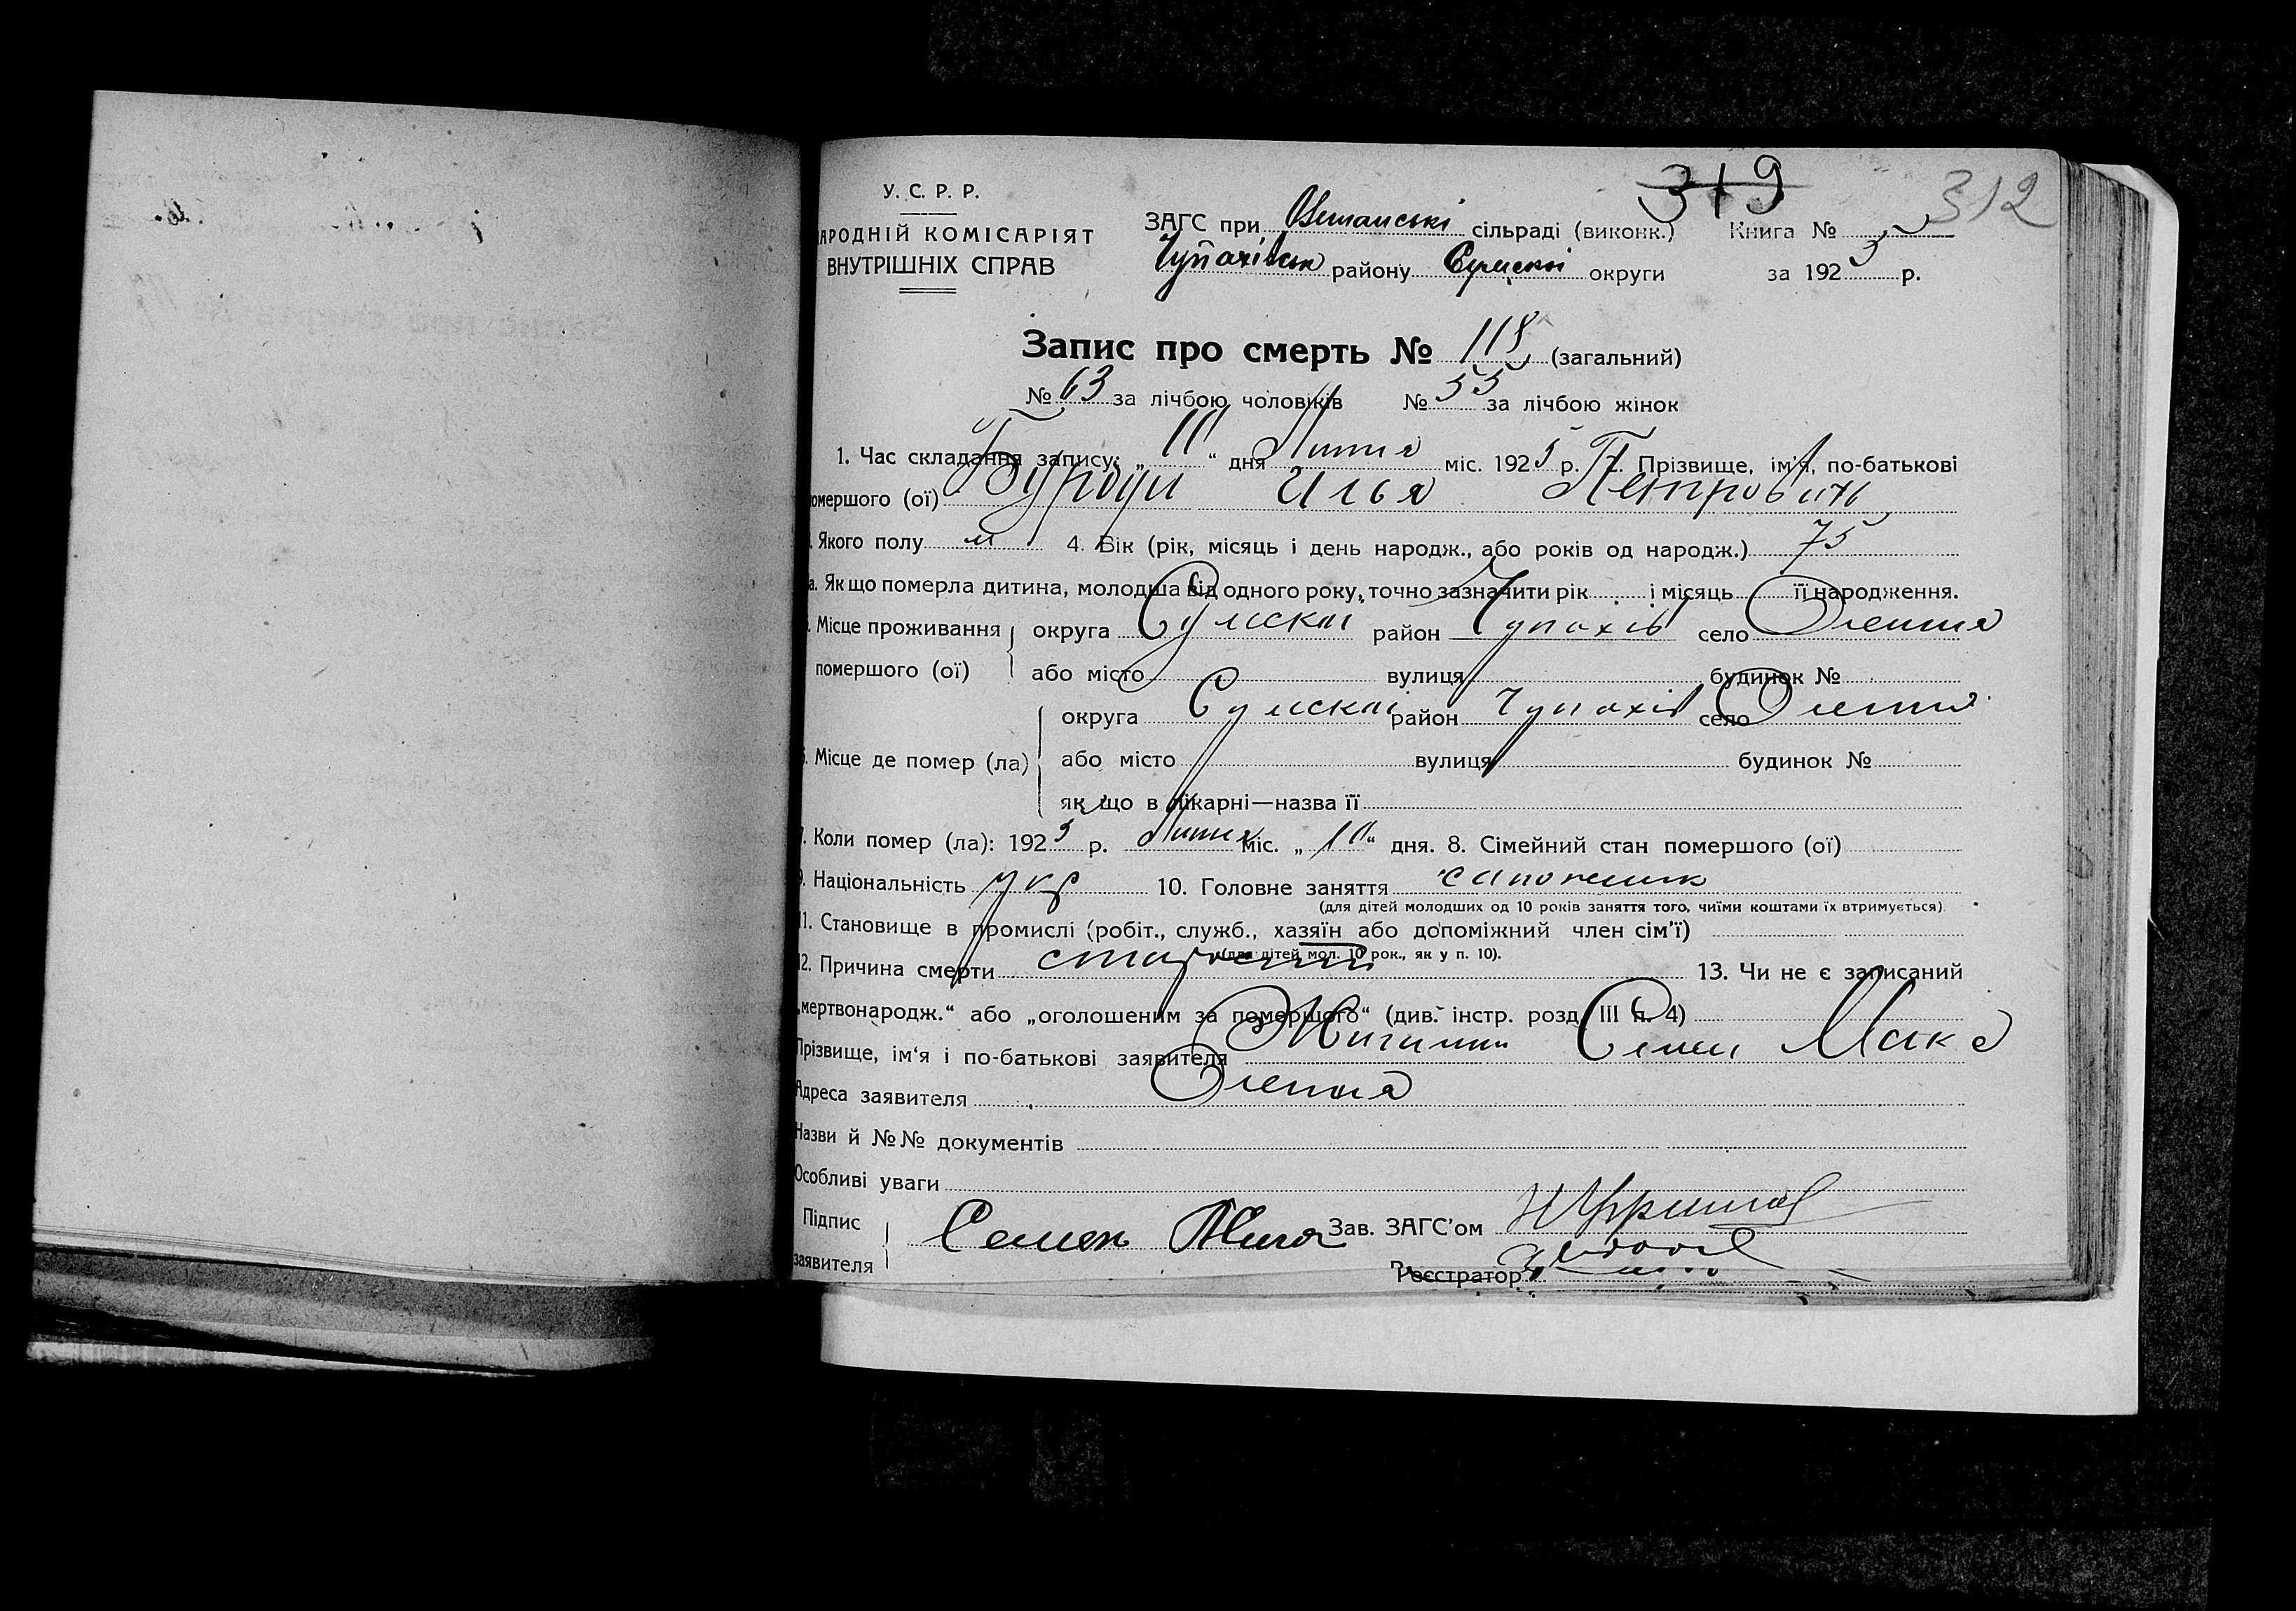 319 312
У. С. Р. Р.
АРОДНІЙ КОМІСАРІЯТ
ВНУТРІШНІХ СПРАВ
ЗАГС при сільраді (виконк.) Книга №
Чупахівськ району Сумскої округи за 1925 р.
Запис про смерть № 118 (загальний)
№ 63 за лічбою чоловіків № 55 за лічбою жінок
1. Час складання запису: „ 11 “ дня Липня міс. 1925 р. 2. Прізвище, ім'я, по-батькові
омершого (ої) Илья Петрович
. Якого полу м 4. Вік (рік, місяць і день народж., або років од народж.) 75
а. Якщо померла дитина, молодша від одного року, точно зазначити рік і місяць її народження.
. Місце проживання округа Сумскої район Чупахів село Олешня
помершого (ої) або місто вулиця будинок №
округа Сумскої район Чупахів село Олешня
. Місце де помер (ла) або місто вулиця будинок №
як що в лікарні—назва її
7. Коли помер (ла): 1925 р. Липня міс. „ 10 “ дня. 8. Сімейний стан помершого (ої)
9. Національність укр 10. Головне заняття сапожник
(для дітей молодших од 10 років заняття того, чиїми коштами їх втримується).
11. Становище в промислі (робіт., служб., хазяїн або допоміжний член сім'ї)
(для дітей мол. 10 рок., як у п. 10).
12. Причина смерти старости 13. Чи не є записаний
„мертвонародж.“ або „оголошеним за померщого“ (див. інстр. розд. III п. 4)
Прізвище, ім'я і по-батькові заявителя Семен Мака
Адреса заявителя Олешня
Назви й №№ документів
Особливі уваги
Підпис
заявителя
Семен Зав. ЗАГС'ом
Реєстратор